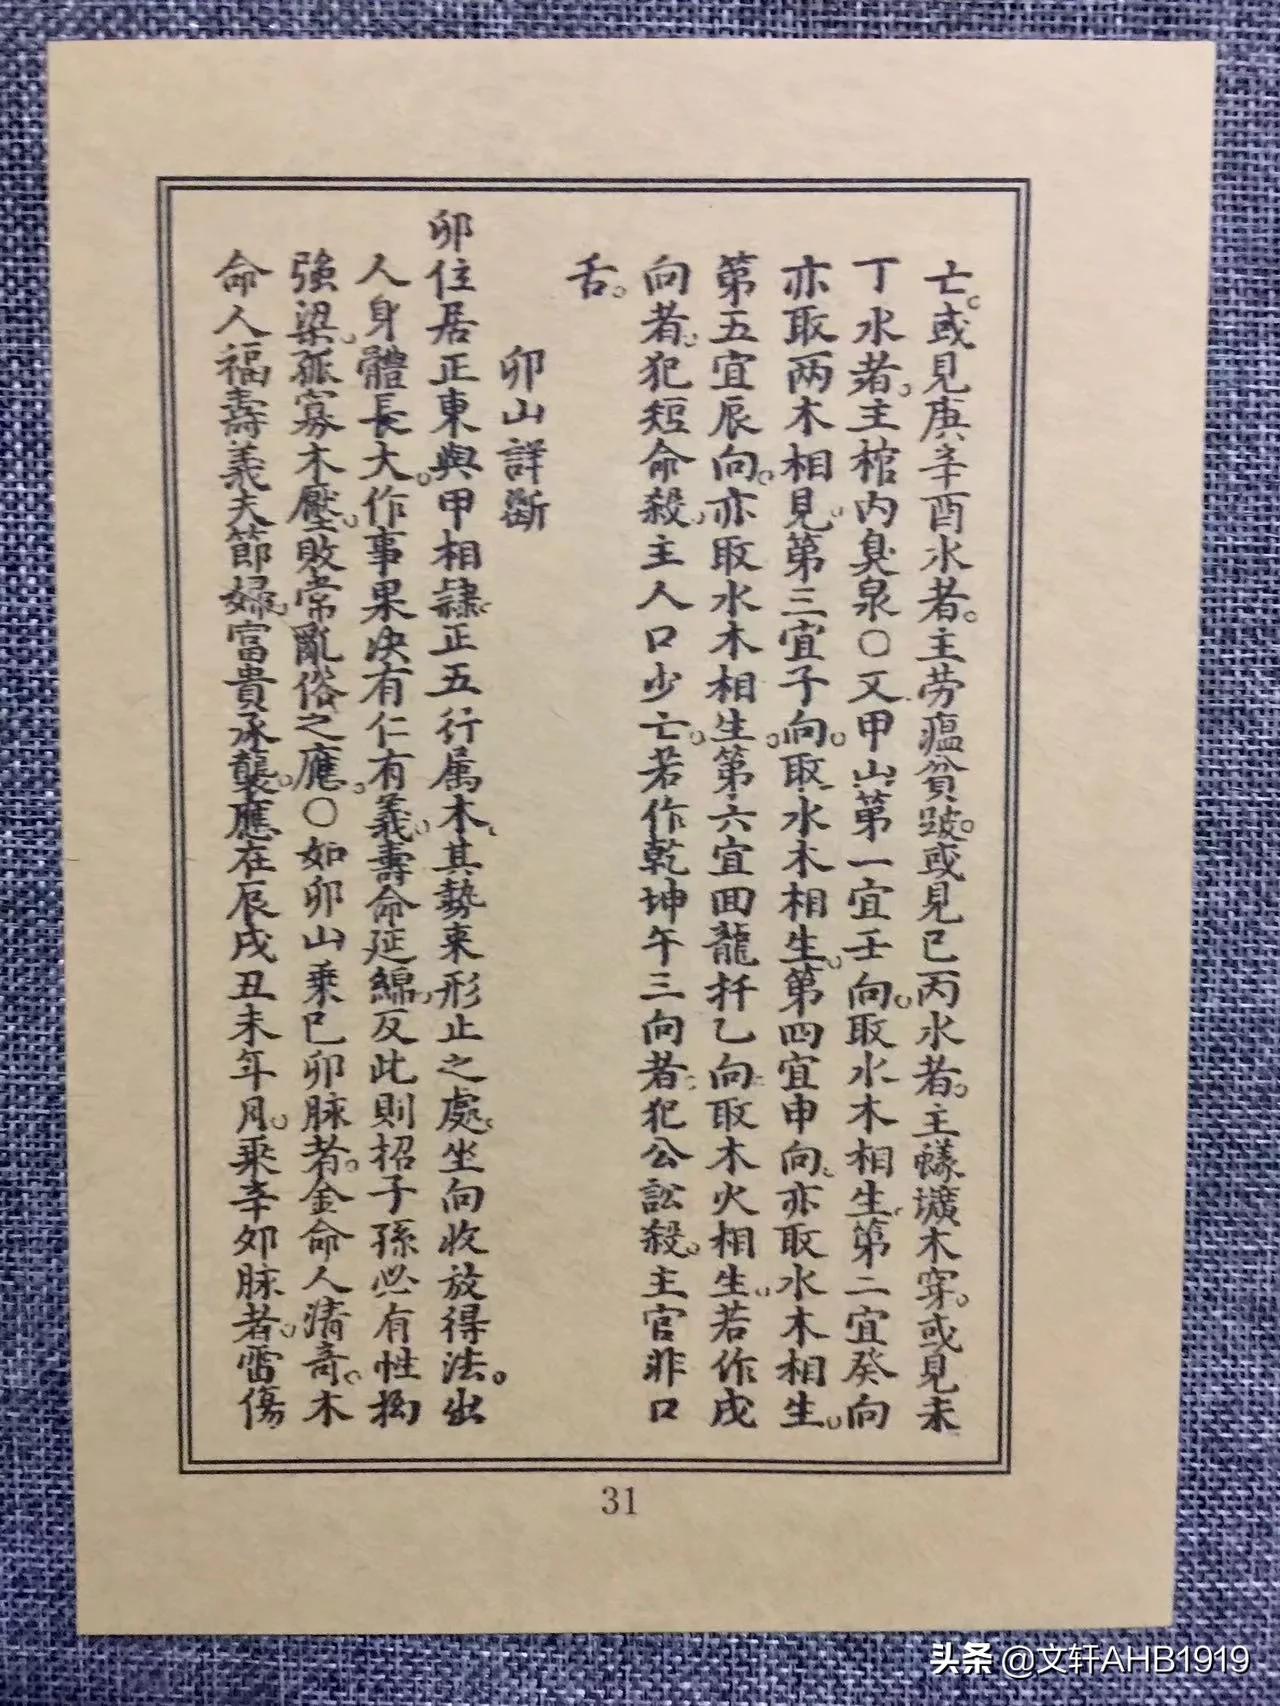 亡。或見庚辛酉水者。主劳瘟貧跛。或見巳丙水者。主蟻壙木穿。或見未
丁水者。主棺内臭泉〇又甲山第一宜壬向。取水木相生。第二宜癸向
亦取两木相見。第三宜子向。取水木相生。第四宜申向。亦取水木相生。
第五宜辰向。亦取水木相生。第六宜回龍扦乙向。取木火相生。若作戌
向者。犯短命殺。主人口少亡。若作乾坤午三向者。犯公訟殺。主官非口
舌。
卯山詳斷
卯位居正東與甲相隸。正五行属木。其勢東形止之處。坐向收放得法。出
人身體長大。作事果决有仁有義。壽命延綿。反此則招子孫必有性拗
強梁。孤寡木壓。敗常亂俗之應。〇如卯山乘巳卯脉者。金命人清奇。木
命人福壽義夫節婦。富貴承襲。應在辰戌丑未年月。乘辛卯脉者。雷傷
31
头条 @文轩AHB1919